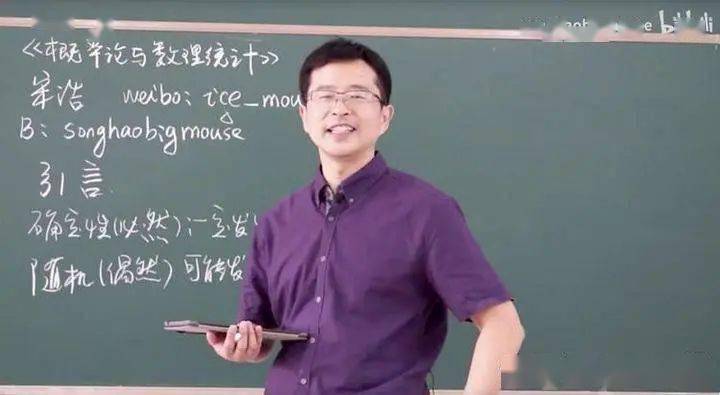 《概率论与数理统计》
宋浩 weibo: ice_mou
B: songhaobigmouse
引言
确定性(必然):一定发
随机(偶然)可能发
bilibili